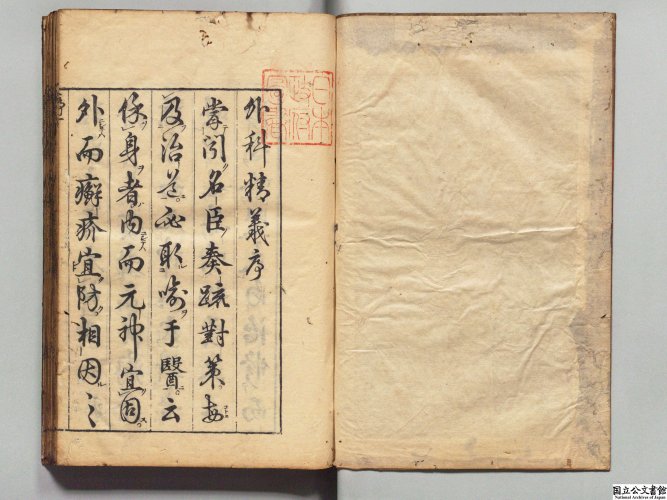 外科精義序
嘗聞名臣奏疏對策每
及治道必取喻于醫云
保身者内而元神宜固
外而癬疥宜防相因之
日本
政府
圖書
国立公文書館
National Archives of Japan